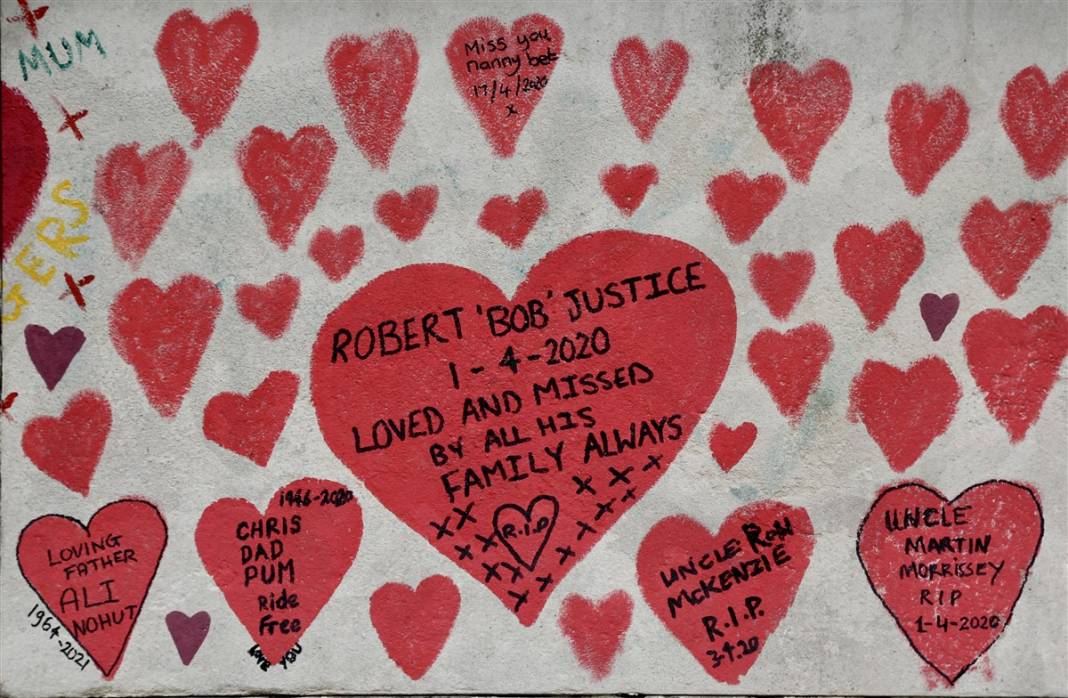 MUM
GERS
Miss you
nanny bet
17/4/2020
x
ROBERT 'BOB' JUSTICE
1-4-2020
LOVED AND MISSED
BY ALL HIS
FAMILY ALWAYS
X X X
X X X X X
X X R.I.P X
X X X
X
LOVING
FATHER
ALI
NOHUT
1964-2021
1946-2020
CHRIS
DAD
PUM
Ride
Free
LOVE YOU
UNCLE RON
McKENZIE
R.I.P.
3.4.20
UNCLE
MARTIN
MORRISSEY
RIP
1-4-2020